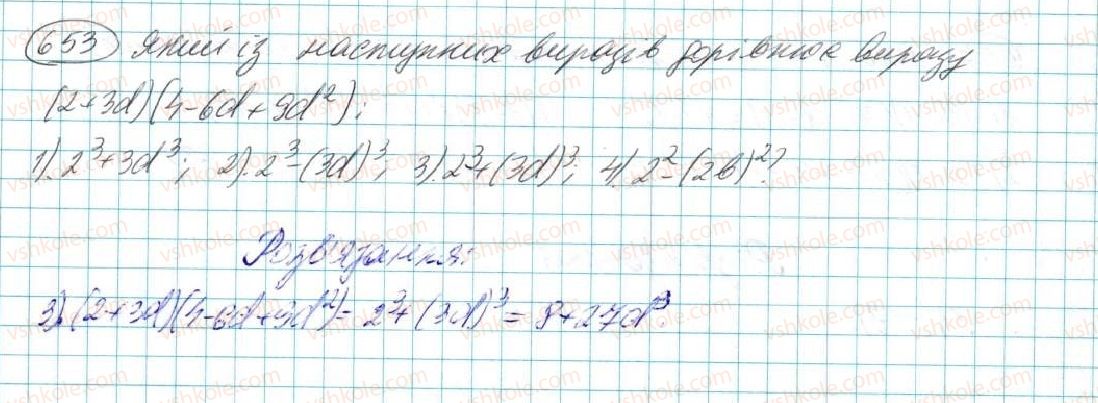 653 Який із наступних виразів дорівнює виразу
(2+3d)(4-6d+9d²);
1). 2³+3d³; 2). 2³-(3d)³; 3). 2³+(3d)³; 4). 2²-(2в)²?
Розв'язання:
3). (2+3d)(4-6d+9d²)= 2³+(3d)³= 8+27d³.